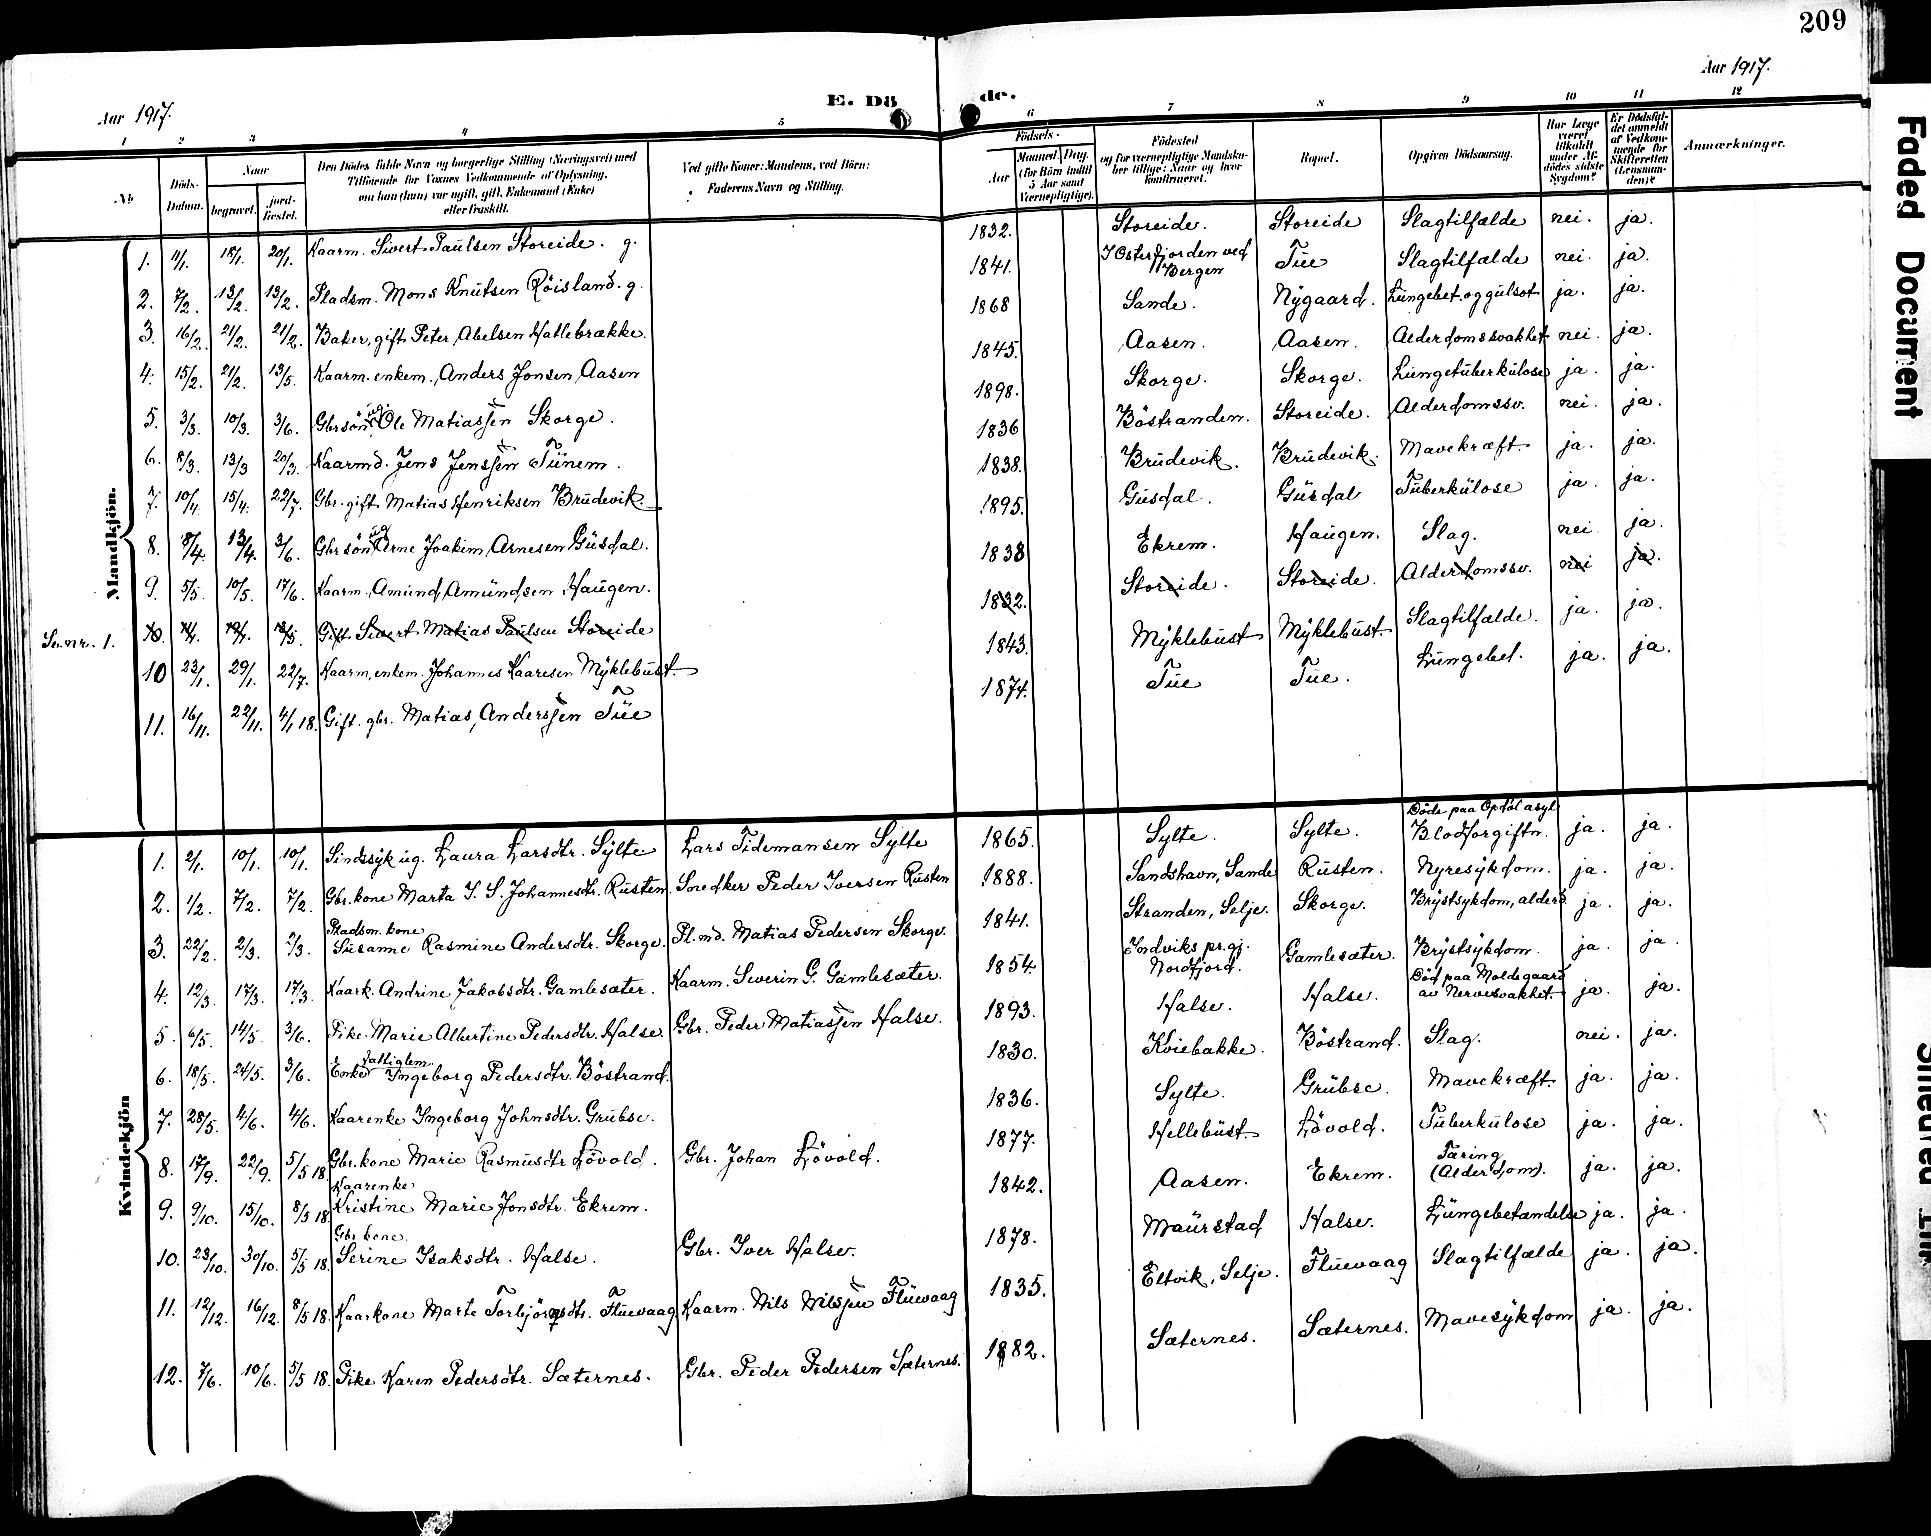 209
Aar 1917.
Aar 1917.
E. Dö
de.
1 2 3 4 5 6 7 8 9 10 11 12
No
Döds-Datum.
Naar
begravet.
jord-fæstet.
Den Dödes fulde Navn og borgerlige Stilling (Næringsvei) med
Tilföiende for Voxnes Vedkommende af Oplysning,
om han (hun) var ugift, gift, Enkemand (Enke)
eller fraskilt.
Ved gifte Koner: Mandens, ved Börn:
Faderens Navn og Stilling.
Födsels-
Aar
Maaned. Dag.
(for Börn indtil
5 Aar samt
Værnepligtige).
Födested
og for værnepligtige Mandska-
ber tillige: Naar og hvor
Konfirmeret.
Bopæl.
Opgiven Dödsaarsag.
Har Læge
været
tilkaldt
under Af-
dödes sidste
Sygdom?
Er Dödsfal-
det anmeldt
af Vedkom-
mende for
Skifteretten
(Lensman-
den)?
Anmærkninger.
Mandkjön.
1. 11/1. 18/1. 20/1. Kaarm. Sivert Paulsen Storeide. g. 1832. Storeide. Storeide Slagtilfælde nei. ja.
2. 7/2. 13/2 13/2. Pladsm. Mons Knutsen Röisland. g. 1841. I Osterfjorden ved Bergen Tue Slagtilfælde nei. ja.
3. 16/2. 21/2. 21/2. Baker, gift Peter Abelsen Hatlebrække. 1868 Sande. Nygaard. Lungebet. og gulsot ja. ja.
4. 15/2. 21/2. 13/5. Kaarm. enkem. Anders Jonsen Aasen 1845. Aasen. Aasen. Alderdomssvakhet nei. ja.
5. 3/3. 10/3. 3/6. Gbrsön ug. Ole Matiassen Skorge. 1898. Skorge. Skorge. Lungetuberkulose ja. ja.
6. 8/3. 13/3 20/3. Kaarmd. Jens Jenssen Tunem. 1836 Böstranden. Storeide. Alderdomssv. nei. ja.
7. 10/4. 15/4. 22/7. Gbr. gift. Matias Henriksen Brudevik 1838. Brudevik. Brudevik. Mavekræft. ja. ja.
8. 8/4. 13/4. 3/6. Gbrsön ug Arne Joakim Arnesen Gusdal. 1895. Gusdal. Gusdal Tuberkulose ja. ja.
9. 5/5. 10/5. 17/6. Kaarm. Amund Amundsen Haugen. 1838 Ekrem. Haugen. Slag. nei. ja.
Se nr. 1. 10. 11/1. 18/5. Gift Sivert Matias Paulsen Storeide 1832. Storeide. Storeide. Alderdomssv. nei ja.
10 23/1. 29/1. 22/7. Kaarm, enkem. Johannes Kaaresen Myklebust. 1843. Myklebust Myklebust. Slagtilfælde. ja. ja.
11. 16/11. 22/11. 4/1 18. Gift. gbr. Matias Anderssen Tue 1874. Tue Tue. Lungebet. ja. ja.
Kvindekjön
1. 2/1. 10/1. 10/1. Sindssyk ug. Laura Larsdtr. Sylte Lars Tidemansen Sylte 1865. Sylte. Sylte. Döde paa Opdöl asyl Blodforgiftn. ja. ja.
2. 1/2. 7/2. 7/2. Gbr. kone Marta I. S. Johannesdtr. Rusten Snedker Peder Iversen Rusten 1888. Sandshavn, Sande Rusten. Nyresykdom. ja. ja.
3. 22/2. 2/3. 2/3. Pladsm. kone Susanne Rasmine Andersdtr. Skorge. Pl.md. Matias Pedersen Skorge. 1841. Stranden, Selje. Skorge. Brystsykdom, alderd ja. ja.
4. 12/3. 17/3. 17/3. Kaark. Andrine Jakobsdtr. Gamlesæter. Kaarm. Severin G. Gamlesæter. 1854. Indviks pr.gj. Nordfjord. Gamlesæter. Brystsykdom. ja. ja.
5. 6/5. 14/5. 3/6. Pike. Marie Albertine Pedersdtr. Halse. Gbr. Peder Matiassen Halse. 1893. Halse. Halse. Död paa Moldegaard av Nervesvakhet. ja. ja.
6. 18/5. 24/5. 3/6. Enke fattiglem. Ingeborg Pedersdtr. Böstrand. 1830. Kviebakke. Böstrand. Slag. nei. ja.
7. 28/5. 4/6. 4/6. Kaarenke Ingeborg Johnsdtr. Grubse. 1836. Sylte. Grubse. Mavekræft. ja. ja.
8. 17/9. 22/9. 5/5 18. Gbr. kone Marie Rasmusdtr Lövold. Gbr. Johan Lövold. 1877. Hellebust Lövold. Tuberkulose ja. ja.
9. 9/10. 15/10. 8/5 18. Kaarenke Kristine Marie Jonsdtr. Ekrem. 1842. Aasen. Ekrem. Tæring (Alderdom). ja. ja.
10. 23/10. 30/10. 5/5 18. Gbr. kone. Serine Isaksdtr. Halse. Gbr. Iver Halse. 1878. Maurstad Halse. Lungebetændelse ja. ja.
11. 12/12. 16/12. 8/5 18. Kaarkone Marte Torbjörnsdtr. Fluevaag Kaarm. Nils Nilssen Fluevaag 1835. Eltvik, Selje. Fluevaag Slagtilfælde ja. ja.
12. 7/6. 10/6. 5/5 18. Pike Karen Pedersdtr. Sæternes. Gbr. Peder Pedersen Sæternes. 1882. Sæternes. Sæternes. Mavesykdom ja. ja.
Faded Document